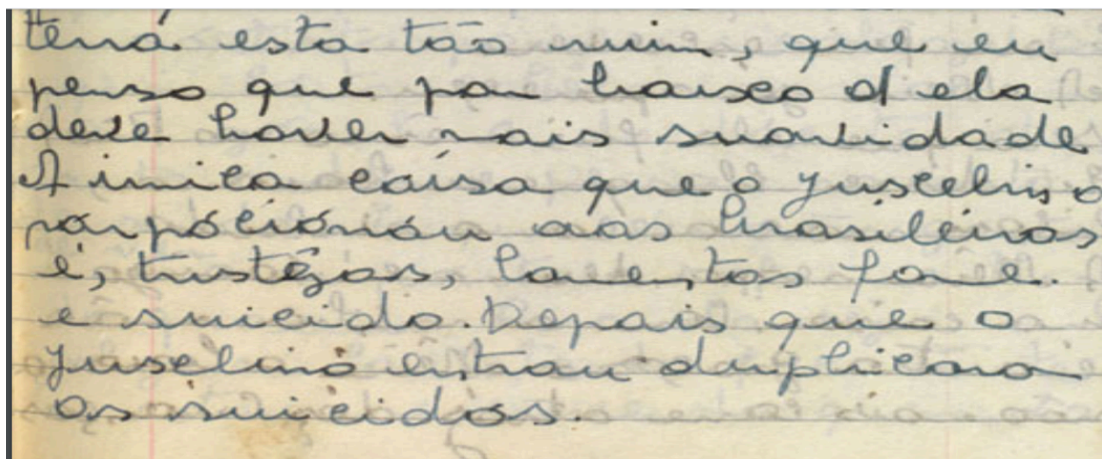 terra esta tão ruim, que eu
penso que por baixo d ela
deve haver mais suavidade
A unica coisa que o Juscelino
porpóciónóu aos brasileiros
é, tristêzas, lamentos fome.
e suicido. Depois que o
Juscelino entrou duplicara
os suicidos.